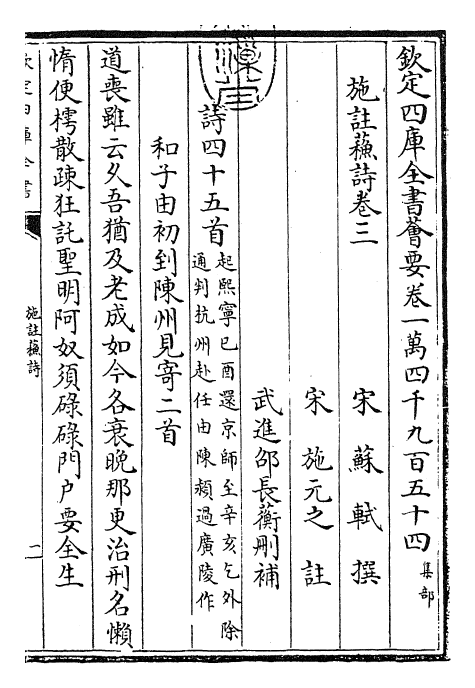 欽定四庫全書薈要卷一萬四千九百五十四 集部
施註蘇詩卷三
宋 蘇軾 撰
宋 施元之 註
武進邵長蘅刪補
詩四十五首 起熙寧己酉還京師至辛亥乞外除
通判杭州赴任由陳潁過廣陵作
和子由初到陳州見寄二首
道喪雖云久吾猶及老成如今各衰晚那更治刑名懶
惰便樗散疎狂託聖明阿奴須碌碌門户要全生
欽定四庫全書
施註蘇詩
二